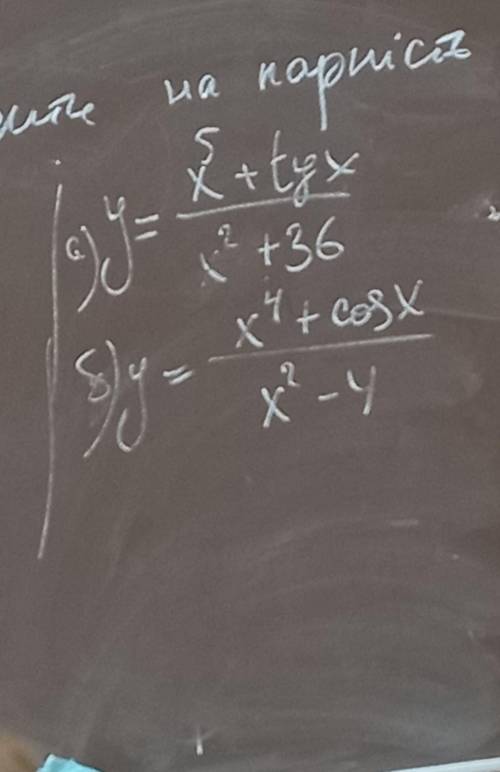 на парність
а) y = x⁵ + tgx / x² + 36
б) y = x⁴ + cosx / x² - 4